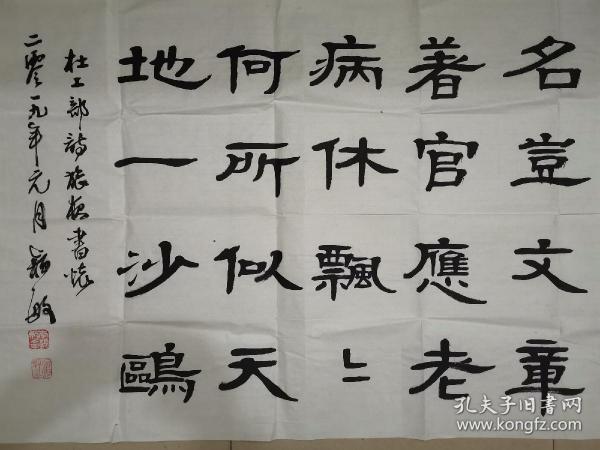 名豈文章
著官應老
病休飄〻
何所似天
地一沙鷗
杜工部詩旅夜書懷
二零一九年元月
孔夫子旧书网
www.kongfz.com